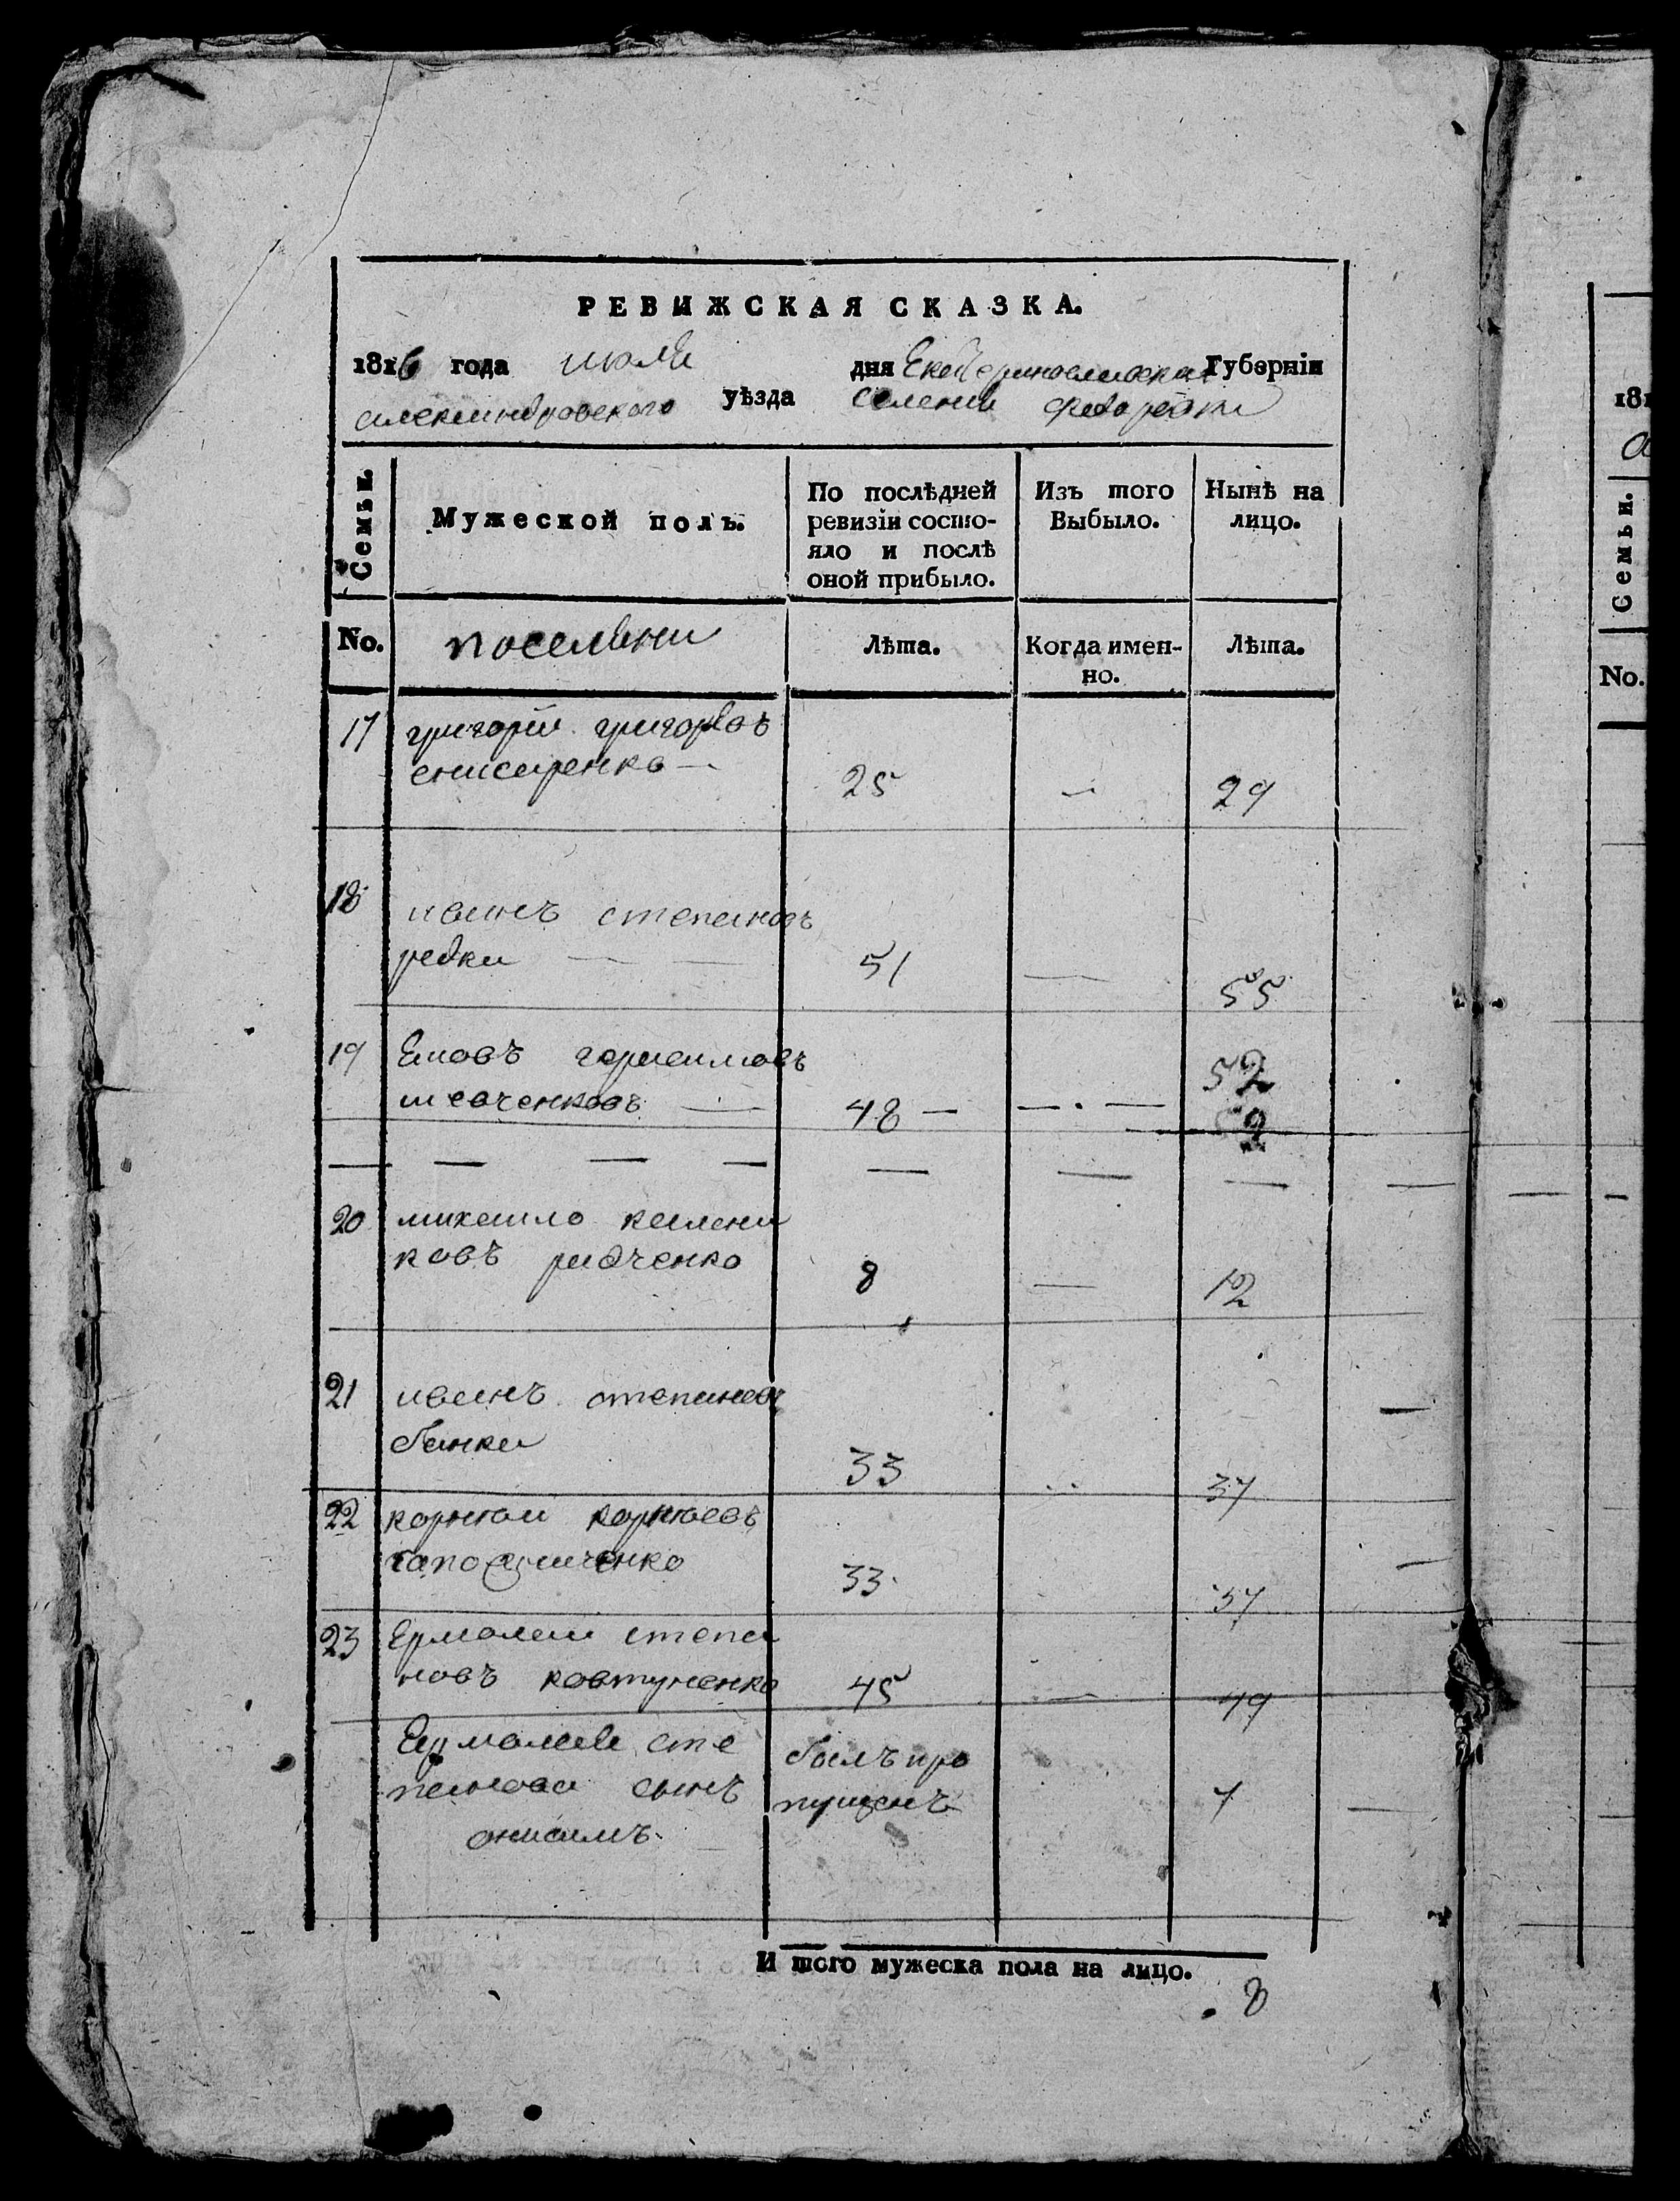 РЕВИЖСКАЯ СКАЗКА.
1816 года июля дня Екатеринославской Губернiи
александровского уѣзда селения федоровки
Семьи.
Мужеской полъ.
По послѣдней ревизiи состо-
яло и послѣ
оной прибыло.
Изъ того
Выбыло.
Нынѣ на
лицо.
No. поселяни Лѣта. Когда имен-
но. Лѣта.
17 григорiй григорьевъ
снисаренко — 25 — 29
18 иванъ степановъ
редка — — 51 — 55
19 Емовъ герасимовъ
шевченковъ — 48 — — . — 52
52
20 михайло калени
ковъ радченко 8 — 12
21 иванъ степановъ
банка 33 37
22 корнѣй корнѣевъ
сапожниченко 33 37
23 Ермолай степа
новъ ковтуненко 45 — 49
Ермолая сте
панова сынъ
онисимъ былъ про
пущенъ 7
И того мужеска пола на лицо.
8
181
Семьи.
No.